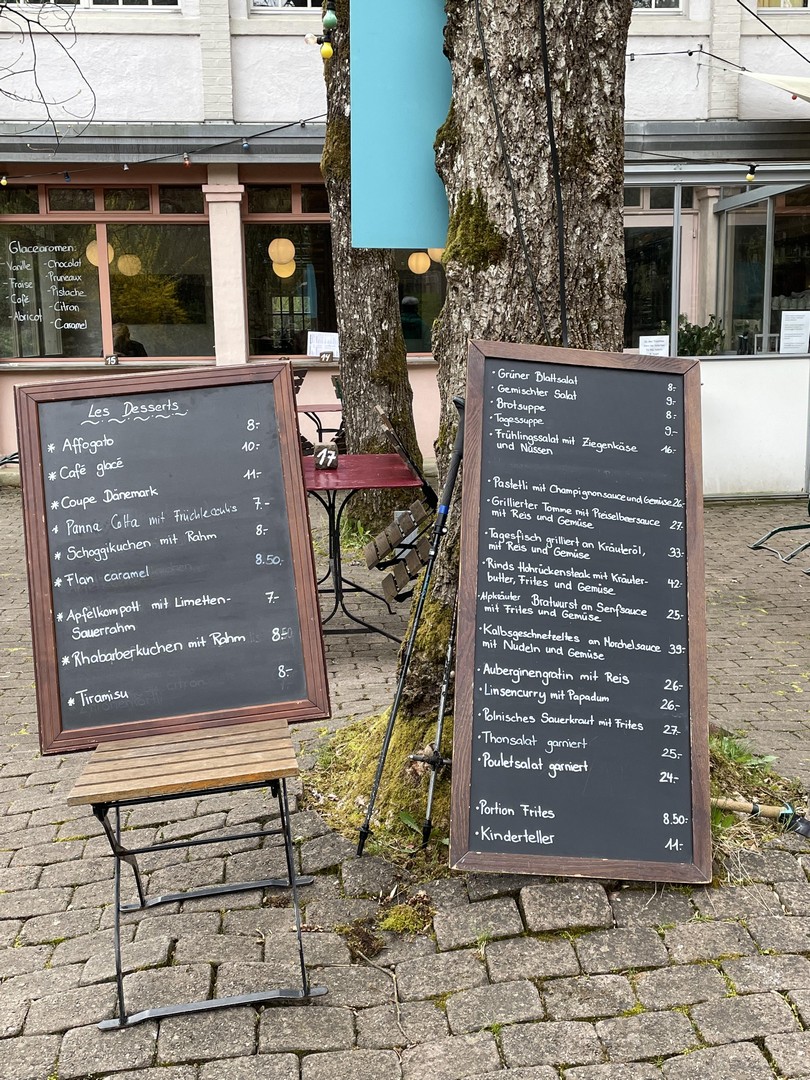 Glacearomen:
- Vanille
- Fraise
- Café
- Abricot
- Chocolat
- Pruneaux
- Pistache
- Citron
- Caramel
15
14
17
Les Desserts
* Affogato 8.-
* Café glacé 10.-
* Coupe Dänemark 11.-
* Panna Cotta mit 7.-
* Schoggikuchen mit Rahm 8.-
* Flan caramel 8.50.-
* Apfelkompott mit Limetten- 7.-
Sauerrahm
* Rhabarberkuchen mit Rahm 8.50
* Tiramisu 8.-
· Grüner Blattsalat 8.-
· Gemischter Salat 9.-
· Brotsuppe 8.-
· Tagessuppe 9.-
· Frühlingssalat mit Ziegenkäse 16.-
und Nüssen
· Pastetli mit Champignonsauce und Gemüse 26.-
· Grillierter Tomme mit Preiselbeersauce 27.-
mit Reis und Gemüse
· Tagesfisch grilliert an Kräuteröl, 33.-
mit Reis und Gemüse
· Rinds Hohrückensteak mit Kräuter- 42.-
butter, Frites und Gemüse
· Alpkräuter Bratwurst an Senfsauce 25.-
mit Frites und Gemüse
· Kalbsgeschnetzeltes an Morchelsauce 39.-
mit Nudeln und Gemüse
· Auberginengratin mit Reis 26.-
· Linsencurry mit Papadum 26.-
· Polnisches Sauerkraut mit Frites 27.-
· Thonsalat garniert 25.-
· Pouletsalat garniert 24.-
· Portion Frites 8.50.-
· Kinderteller 11.-